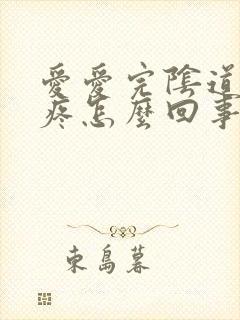 愛愛完陰道
疼怎麼回事
東島暮